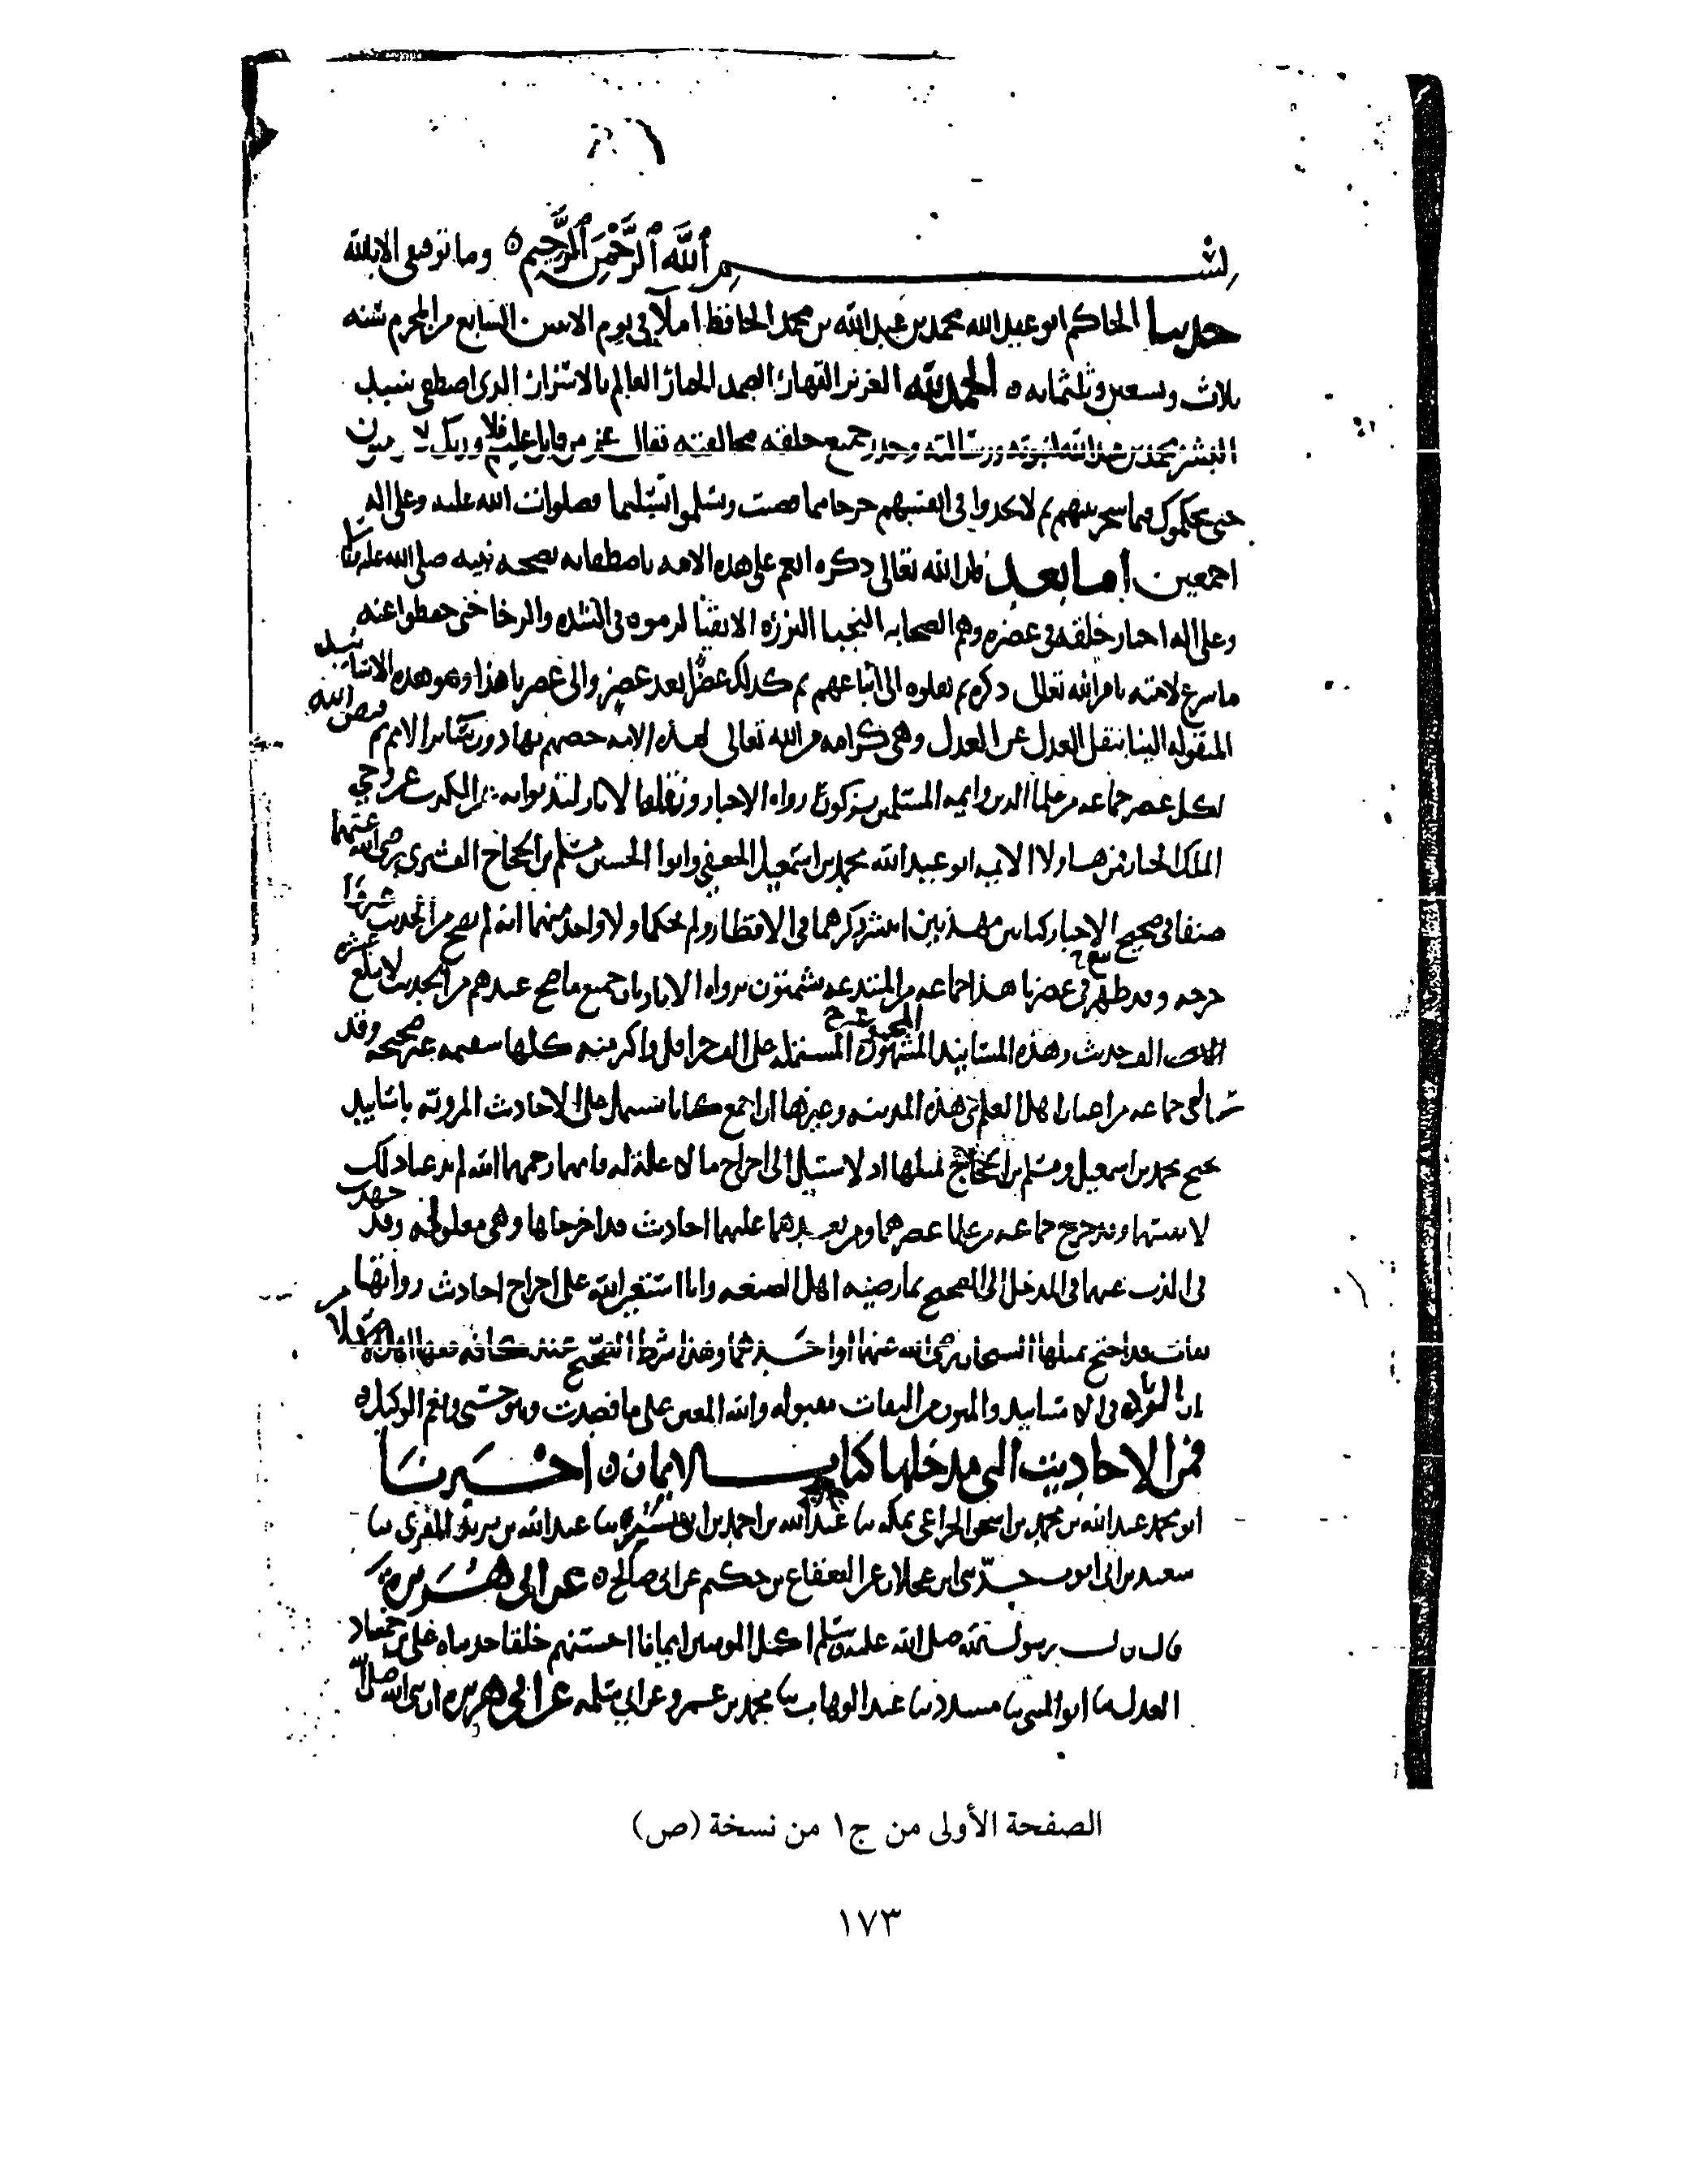 بسم الله الرحمن الرحيم ه وما توفيقي الا بالله
حدثنا الحاكم ابو عبد الله محمد بن عبد الله بن محمد الحافظ املا في يوم الاثنين السابع من المحرم سنه
ثلاث وتسعين وثلثمايه ه الحمد لله العزيز القهار الصمد الجبار العالم بالاسرار الذي اصطفى سيد
البشر محمد بن عبد الله لنبوته ورسالته وحذر جميع خلقه مخالفته فقال عز من قايل فلا وربك لا يومنون
حتى يحكموك فيما شجر بينهم ثم لا يجدوا في انفسهم حرجا مما قضيت ويسلموا تسليما فصلوات الله عليه وعلى اله
اجمعين اما بعد فان الله تعالى ذكره انعم على هذه الامه باصطفايه بصحبه نبيه صلى الله عليه وسلم
وعلى اله اخيار خلقه في عصره وهم الصحابه النجبا البرره الاتقيا لزموه في الشده والرخا حتى حفظوا عنه
ما شرع لامته بامر الله تعالى ذكره ثم نقلوه الى اتباعهم ثم كذلك عصرا بعد عصر والى عصرنا هذا وهو هذه الاسانيد
المنقوله الينا بنقل العدل عن العدل وهي كرامه من الله تعالى لهذه الامه خصهم بها دون ساير الامم ثم قيض الله
لكل عصر جماعه من علما الدين وايمه المسلمين يزكون رواه الاخبار ونقله الاثار ليذبوا به الكذب عن وحي
الملك الجبار فمن هاولا الايمه ابو عبد الله محمد بن اسمعيل الجعفي وابوا الحسين مسلم بن الحجاج القشيري رضي الله عنهما
صنفا في صحيح الاخبار كتابين مهذبين انتشر ذكرهما في الاقطار ولم يحكما ولا واحد منهما انه لم يصح من الحديث غير ما
خرجه وقد نبغ في عصرنا هذا جماعه من المبتدعه يشمتون برواه الاثار بان جميع ما صح عندهم من الحديث لا يبلغ عشره
الاف حديث وهذه المسانيد المجموعه المشتمله على الف جزا اقل واكثر منه كلها سقيمه غير صحيحه وقد
سالني جماعه من اعيان اهل العلم في هذه المدينه وغيرها ان اجمع كتابا يشتمل على الاحاديث المرويه باسانيد
يحتج محمد بن اسمعيل ومسلم بن الحجاج بمثلها اذ لا سبيل الى اخراج ما لا عله له فانهما رحمهما الله لم يدعيا ذلك
لانفسهما وقد خرج جماعه من علما عصرهما ومن بعدهما عليهما احاديث قد اخرجاها وهي معلوله وقد جهدت
في الذب عنهما في المدخل الى الصحيح بما رضيه اهل الصنعه وانا استعين الله على اخراج احاديث رواتها
ثقات قد احتج بمثلها الشيخان رضي الله عنهما او احدهما وهذا شرط الصحيح عند كافه فقها
ان الزياده في الاسانيد والمتون من الثقات مقبوله والله المعين على ما قصدت وهو حسبي ونعم الوكيل ه
فمن الاحاديث التي مدخلها كتاب الايمان ه اخبرنا
ابو محمد عبد الله بن محمد بن اسحق الخزاعي بمكه ثنا عبد الله بن احمد بن ابي مسره ثنا عبد الله بن يزيد المقرى ثنا
سعيد بن ابي ايوب حدثني ابن عجلان عن القعقاع بن حكيم عن ابي صالح ه عن ابي هريره
قال قال رسول الله صلى الله عليه وسلم اكمل المومنين ايمانا احسنهم خلقا حدثناه علي بن حمشاد
العدل ثنا ابو المثنى ثنا مسدد ثنا عبد الوهاب ثنا محمد بن عمرو عن ابي سلمه عن ابي هريره ان نبي الله صلى الله
الصفحة الأولى من ج١ من نسخة (ص)
١٧٣